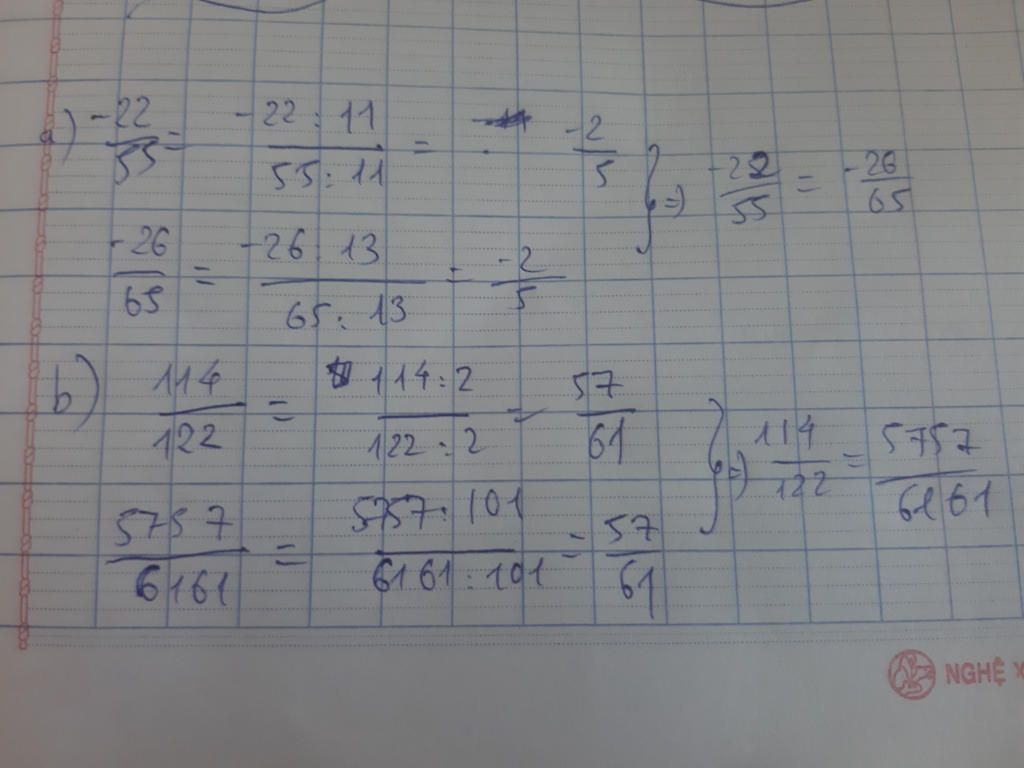 a) -22/55 = -22 : 11/55 : 11 = -2/5
-26/65 = -26 : 13/65 : 13 = -2/5
} => -22/55 = -26/65
b) 114/122 = 114 : 2/122 : 2 = 57/61
5757/6161 = 5757 : 101/6161 : 101 = 57/61
} => 114/122 = 5757/6161
NGHỆ